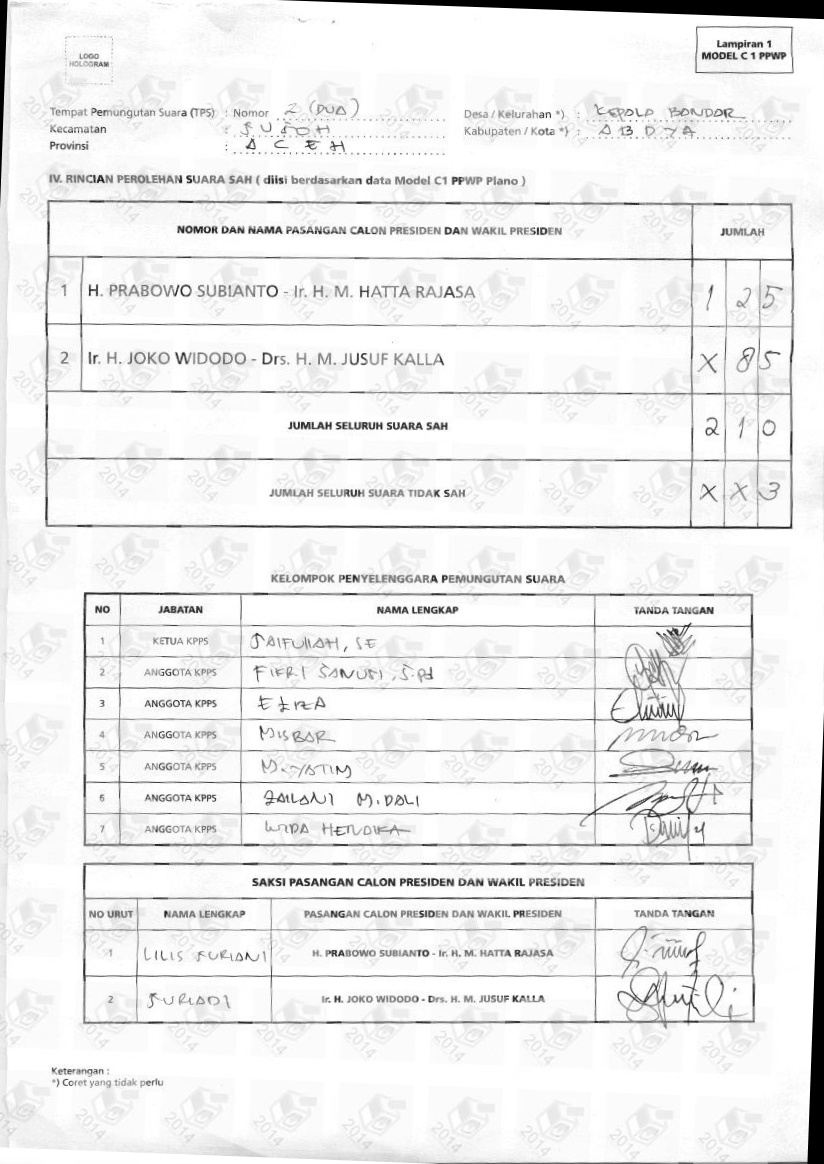 LOGO
HOLOGRAM
Lampiran 1
MODEL C 1 PPWP
Tempat Pemungutan Suara (TPS) : Nomor 2 (DUA)
Desa / Kelurahan *) : KEPALA BANDAR
Kecamatan : SUSOH
Kabupaten / Kota *) : ABDYA
Provinsi : ACEH
IV. RINCIAN PEROLEHAN SUARA SAH ( diisi berdasarkan data Model C1 PPWP Plano )
NOMOR DAN NAMA PASANGAN CALON PRESIDEN DAN WAKIL PRESIDEN JUMLAH
1 H. PRABOWO SUBIANTO - Ir. H. M. HATTA RAJASA 1 2 5
2 Ir. H. JOKO WIDODO - Drs. H. M. JUSUF KALLA X 8 5
JUMLAH SELURUH SUARA SAH 2 1 0
JUMLAH SELURUH SUARA TIDAK SAH X X 3
KELOMPOK PENYELENGGARA PEMUNGUTAN SUARA
NO JABATAN NAMA LENGKAP TANDA TANGAN
1 KETUA KPPS SAIFULLAH, SE
2 ANGGOTA KPPS FIKRI SANUSI, S.Pd
3 ANGGOTA KPPS
4 ANGGOTA KPPS MISBAR
5 ANGGOTA KPPS M. YATIM
6 ANGGOTA KPPS ZAILANI M. DALI
7 ANGGOTA KPPS WIDA HENDIKA
SAKSI PASANGAN CALON PRESIDEN DAN WAKIL PRESIDEN
NO URUT NAMA LENGKAP PASANGAN CALON PRESIDEN DAN WAKIL PRESIDEN TANDA TANGAN
1 LILIS SURIANI H. PRABOWO SUBIANTO - Ir. H. M. HATTA RAJASA
2 SURIADI Ir. H. JOKO WIDODO - Drs. H. M. JUSUF KALLA
Keterangan :
*) Coret yang tidak perlu